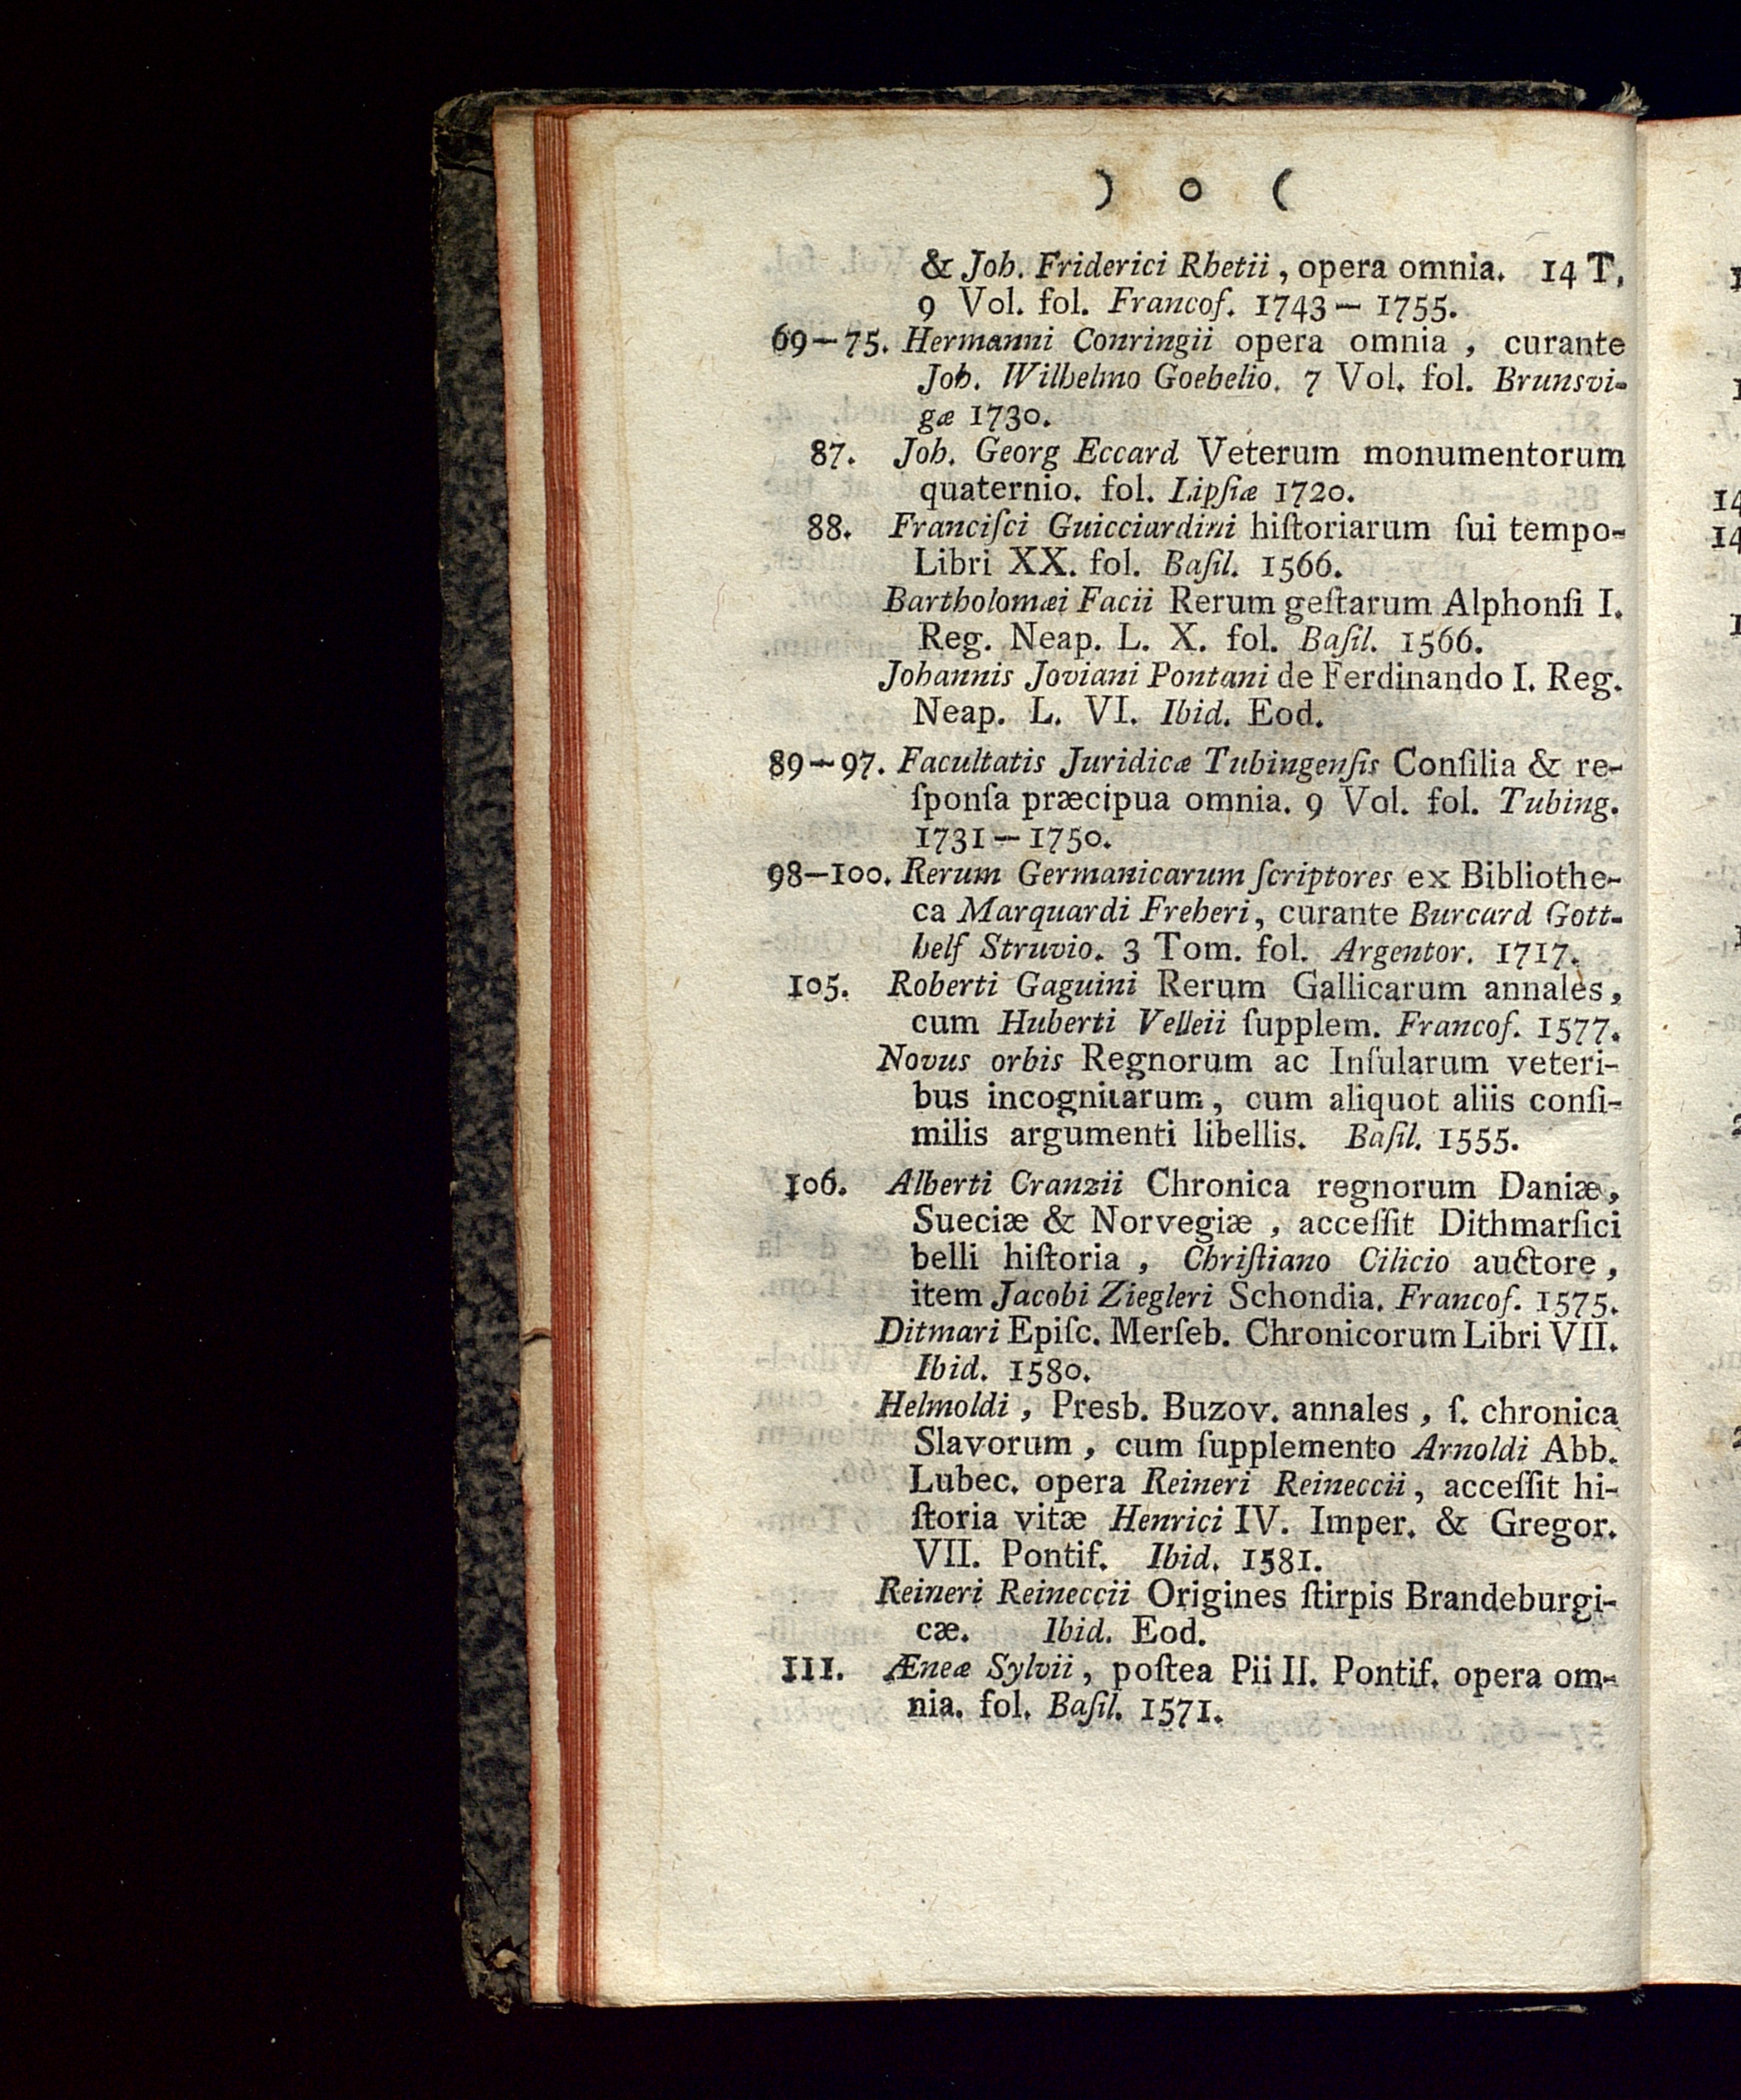 ) o (
& Joh. Friderici Rhetii, opera omnia. 14 T.
9 Vol. fol. Francof. 1743 — 1755.
69—75. Hermanni Conringii opera omnia, curante
Joh. Wilhelmo Goebelio. 7 Vol. fol. Brunsvi-
gæ 1730.
87. Joh. Georg Eccard Veterum monumentorum
quaternio. fol. Lipſiæ 1720.
88. Franciſci Guicciardini hiſtoriarum ſui tempo-
Libri XX. fol. Baſil. 1566.
Bartholomæi Facii Rerum geſtarum Alphonſi I.
Reg. Neap. L. X. fol. Baſil. 1566.
Johannis Joviani Pontani de Ferdinando I. Reg.
Neap. L. VI. Ibid. Eod.
89—97. Facultatis Juridicæ Tubingenſis Conſilia & re-
ſponſa præcipua omnia. 9 Vol. fol. Tubing.
1731 — 1750.
98—100. Rerum Germanicarum ſcriptores ex Bibliothe-
ca Marquardi Freheri, curante Burcard Gott-
helf Struvio. 3 Tom. fol. Argentor. 1717.
105. Roberti Gaguini Rerum Gallicarum annales,
cum Huberti Velleii ſupplem. Francof. 1577.
Novus orbis Regnorum ac Inſularum veteri-
bus incognitarum, cum aliquot aliis conſi-
milis argumenti libellis. Baſil. 1555.
106. Alberti Cranzii Chronica regnorum Daniæ,
Sueciæ & Norvegiæ, acceſſit Dithmarſici
belli hiſtoria, Chriſtiano Cilicio auctore,
item Jacobi Ziegleri Schondia. Francof. 1575.
Ditmari Epiſc. Merſeb. Chronicorum Libri VII.
Ibid. 1580.
Helmoldi, Presb. Buzov. annales, ſ. chronica
Slavorum, cum ſupplemento Arnoldi Abb.
Lubec. opera Reineri Reineccii, acceſſit hi-
ſtoria vitæ Henrici IV. Imper. & Gregor.
VII. Pontif. Ibid. 1581.
Reineri Reineccii Origines ſtirpis Brandeburgi-
cæ. Ibid. Eod.
111. Æneæ Sylvii, poſtea Pii II. Pontif. opera om-
nia. fol. Baſil. 1571.